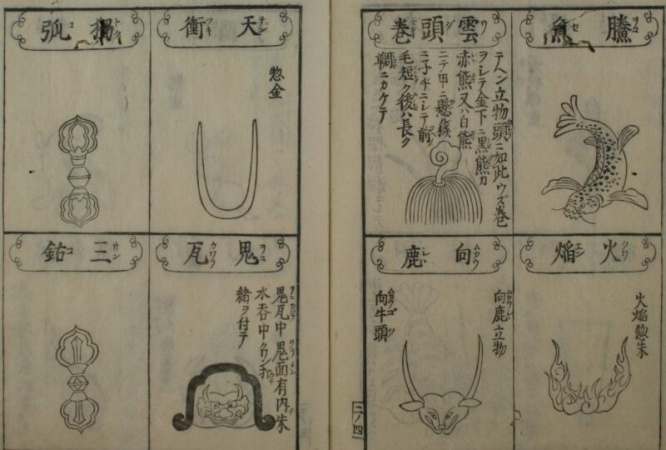 騰魚
雲頭巻
テヘン立物頭ニ如此ウズ巻
ヲシテ金下ニ黒熊カ
赤熊又ハ白熊
ニテ甲ニ懸
ニシテ前
毛短ク後ハ長ク
ニカケテ
火焔
火焔惣朱
向鹿
向鹿立物
向牛頭
二ノ四
天衝
惣金
獨弧
鬼瓦
鬼瓦中鬼面有内朱
水呑中クワン打
緒ヲ付テ
三鈷